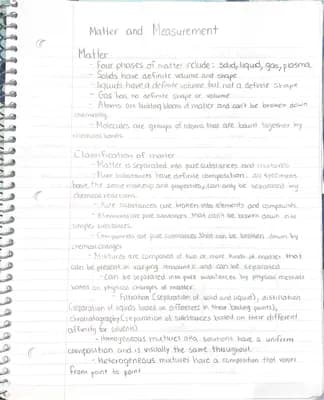 Matter and Measurement
Matter
- Four phases of matter include: solid, liquid, gas, plasma
- Solids have definite volume and shape
- Liquids have a definite volume but not a definite shape
- Gas has no definite shape or volume
- Atoms are building blocks of matter and can't be broken down
chemically
- Molecules are groups of atoms that are bound together by
chemical bonds
Classification of matter
- Matter is separated into pure substances and mixtures
- Pure substances have definite composition. all specimens
have the same makeup and properties, can only be separated by
chemical reactions
- Pure substances are broken into elements and compounds
- Elements are pure substances that can't be broken down into
simpler substances
- Compounds are pure substances that can be broken down by
chemical changes
- Mixtures are composed of two or more kinds of matter that
can be present in varying amounts and can be separated
- Can be separated into pure substances by physical methods
based on physical changes of matter
- Filtration (separation of solid and liquid), distillation
(separation of liquids based on differences in their boiling points),
chromatography (separation of substances based on their different
affinity for solvents)
- Homogeneous mixtures aka. solutions have a uniform
composition and is visually the same throughout
- Heterogeneous mixtures have a composition that varies
from point to point